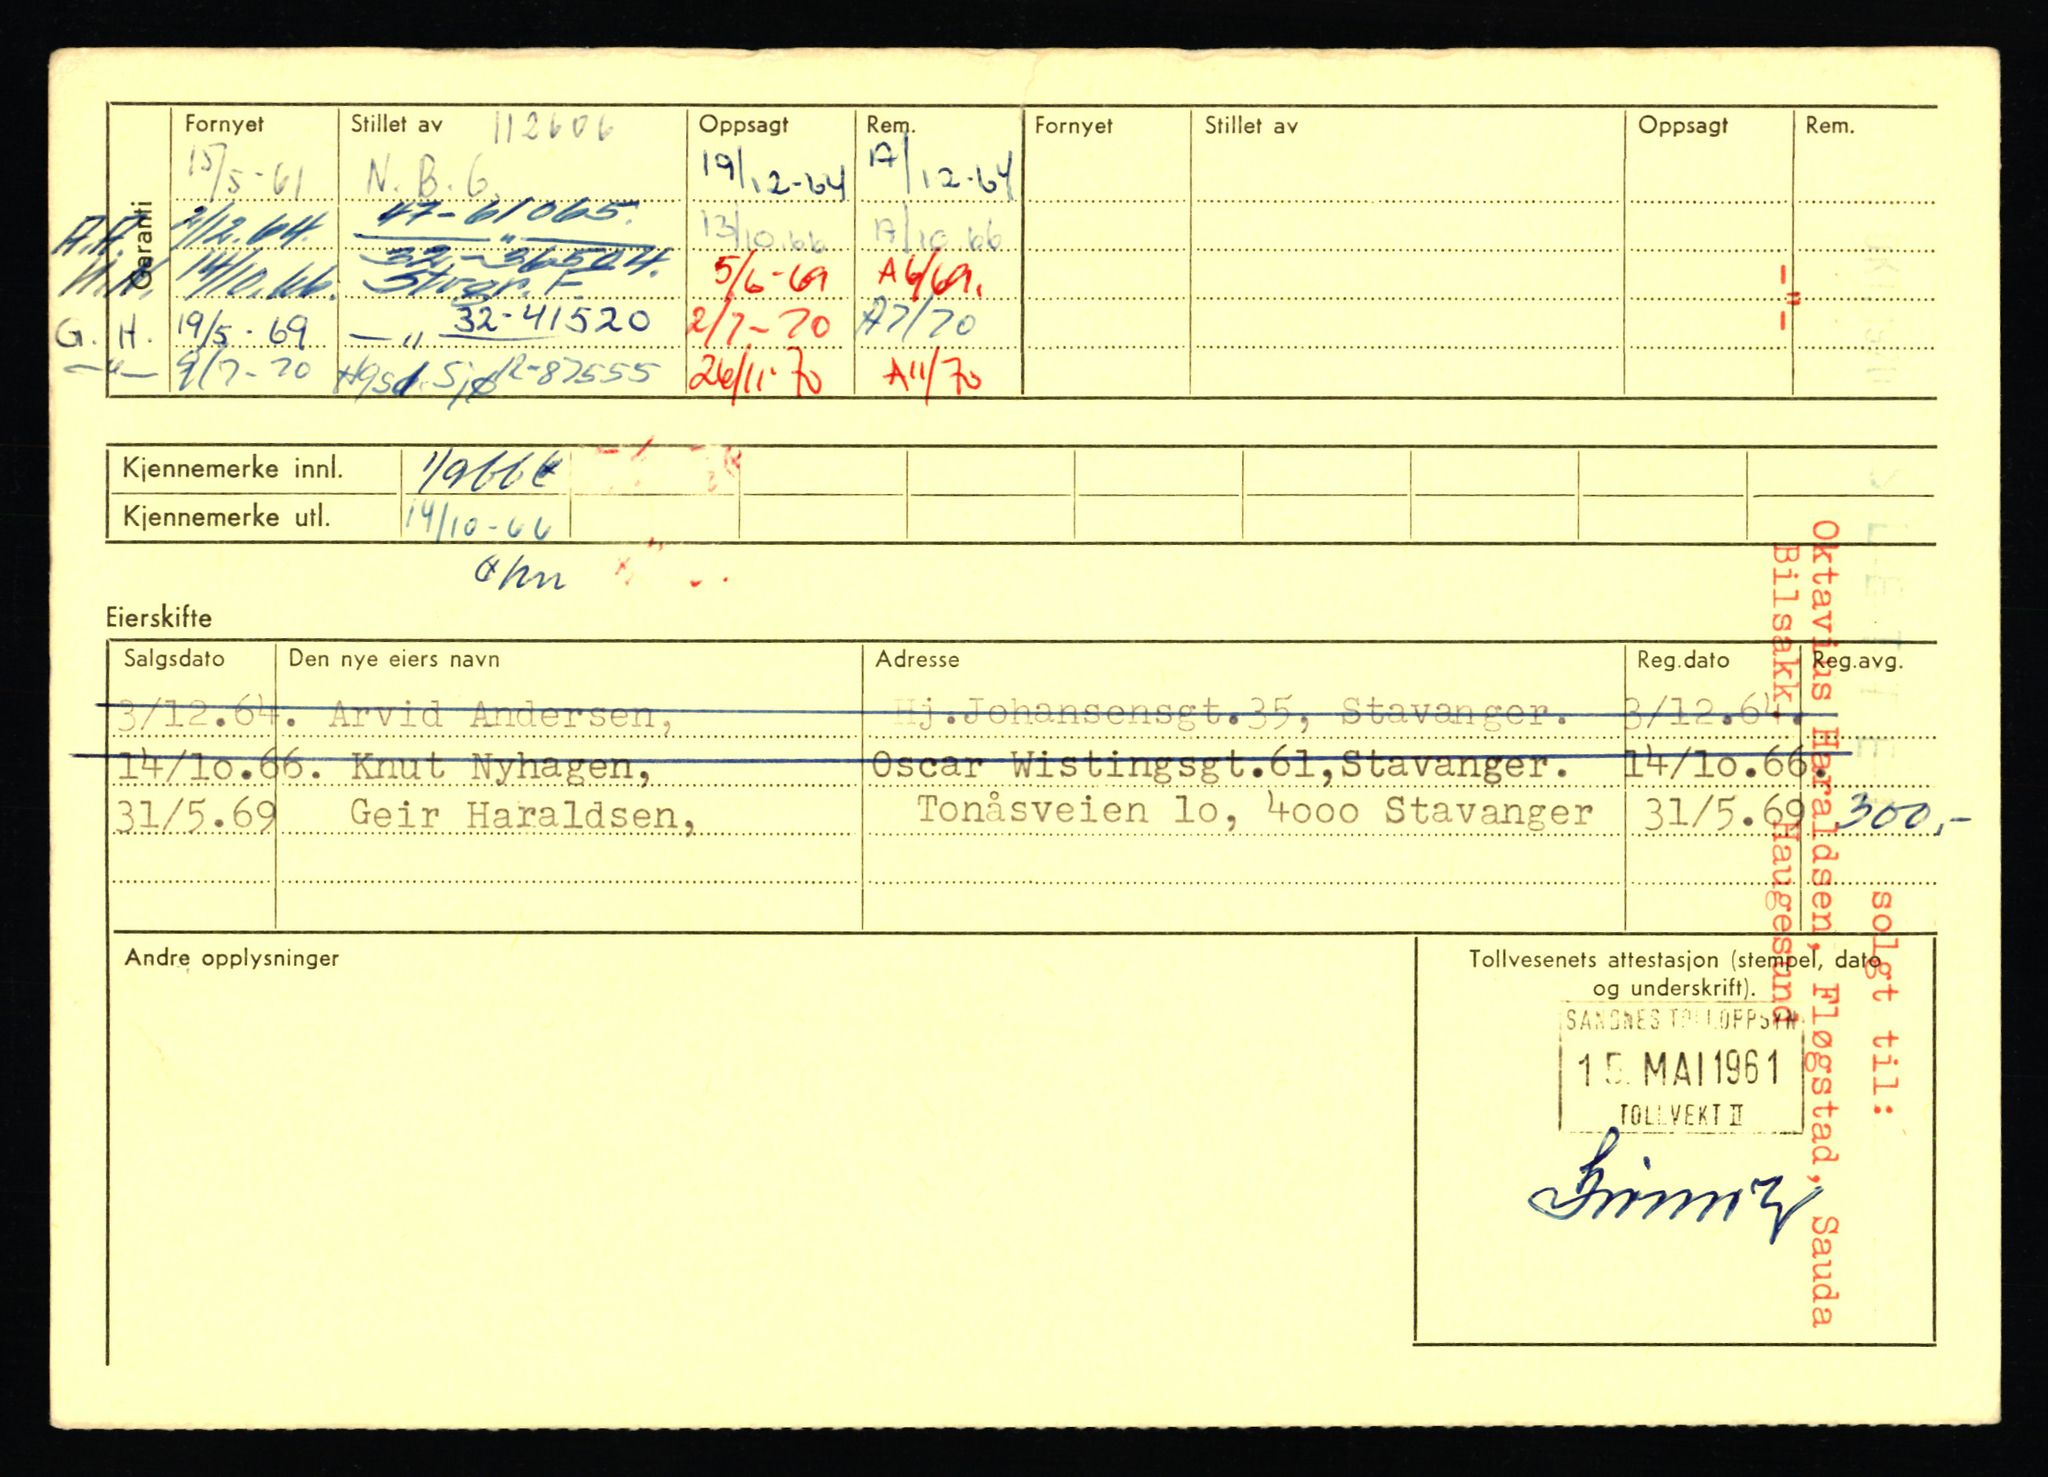 Garanti
Fornyet Stillet av 112606 Oppsagt Rem. Fornyet Stillet av Oppsagt Rem.
15/5-61 N. B. G. 19/12-64 A/12-64
A.A. 2/12.64. 47-61065. 13/10.66 A/10 66
14/10.66. 32-36504. Stvgr. F. 5/6-69 A6/69.
G. H. 19/5-69 —"— 32-41520 2/7-70 A7/70
—"— 9/7-70 Hgsd. Sjø 12-87555 26/11-70 A11/70
—"—
Kjennemerke innl. 1/9 66
Kjennemerke utl. 14/10-66
Eierskifte
Salgsdato Den nye eiers navn Adresse Reg.dato Reg.avg.
3/12.64. Arvid Andersen, Hj.Johansensgt.35, Stavanger. 3/12.64.
14/1o.66. Knut Nyhagen, Oscar Wistingsgt.61,Stavanger. 14/1o.66.
31/5.69 Geir Haraldsen, Tonåsveien 1o, 4ooo Stavanger 31/5.69 300,-
Andre opplysninger
Tollvesenets attestasjon (stempel, dato
og underskrift).
SANDNES TOLLOPPSYN
15. MAI 1961
TOLLVEKT II
solgt til:
Oktavius Haraldsen, Fløgstad, Sauda
Bilsakk. Haugesund